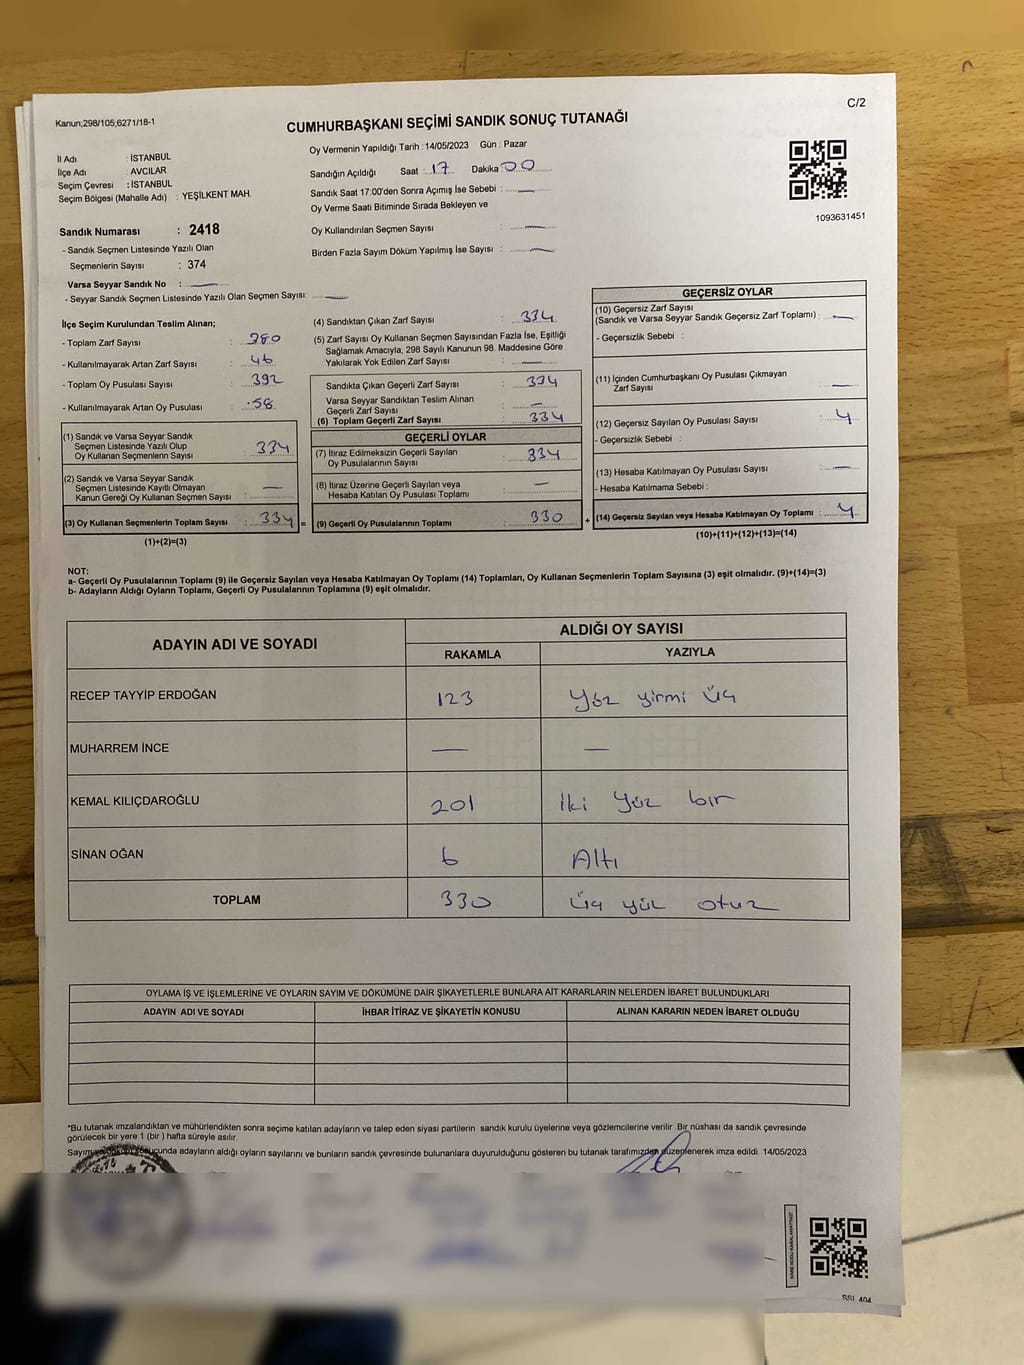 Kanun;298/105,6271/18-1
C/2
CUMHURBAŞKANI SEÇİMİ SANDIK SONUÇ TUTANAĞI
İl Adı : İSTANBUL
İlçe Adı : AVCILAR
Seçim Çevresi : İSTANBUL
Seçim Bölgesi (Mahalle Adı) : YEŞİLKENT MAH.
Oy Vermenin Yapıldığı Tarih :14/05/2023 Gün : Pazar
Sandığın Açıldığı Saat : 17 Dakika : 00
Sandık Saat 17:00'den Sonra Açımış İse Sebebi : —
Oy Verme Saati Bitiminde Sırada Bekleyen ve
Oy Kullandırılan Seçmen Sayısı : —
Birden Fazla Sayım Döküm Yapılmış İse Sayısı : —
1093631451
Sandık Numarası : 2418
- Sandık Seçmen Listesinde Yazılı Olan
Seçmenlerin Sayısı : 374
Varsa Seyyar Sandık No : —
- Seyyar Sandık Seçmen Listesinde Yazılı Olan Seçmen Sayısı : —
İlçe Seçim Kurulundan Teslim Alınan;
- Toplam Zarf Sayısı : 380
- Kullanılmayarak Artan Zarf Sayısı : 46
- Toplam Oy Pusulası Sayısı : 392
- Kullanılmayarak Artan Oy Pusulası : 58
(1) Sandık ve Varsa Seyyar Sandık
Seçmen Listesinde Yazılı Olup
Oy Kullanan Seçmenlerin Sayısı : 334
(2) Sandık ve Varsa Seyyar Sandık
Seçmen Listesinde Kayıtlı Olmayan
Kanun Gereği Oy Kullanan Seçmen Sayısı : —
(3) Oy Kullanan Seçmenlerin Toplam Sayısı : 334 =
(1)+(2)=(3)
(4) Sandıktan Çıkan Zarf Sayısı : 334
(5) Zarf Sayısı Oy Kullanan Seçmen Sayısından Fazla İse, Eşitliği
Sağlamak Amacıyla; 298 Sayılı Kanunun 98. Maddesine Göre
Yakılarak Yok Edilen Zarf Sayısı : —
Sandıkta Çıkan Geçerli Zarf Sayısı : 334
Varsa Seyyar Sandıktan Teslim Alınan
Geçerli Zarf Sayısı : —
(6) Toplam Geçerli Zarf Sayısı : 334
GEÇERLİ OYLAR
(7) İtiraz Edilmeksizin Geçerli Sayılan
Oy Pusulalarının Sayısı : 334
(8) İtiraz Üzerine Geçerli Sayılan veya
Hesaba Katılan Oy Pusulası Toplamı : —
(9) Geçerli Oy Pusulalarının Toplamı : 330 +
GEÇERSİZ OYLAR
(10) Geçersiz Zarf Sayısı
(Sandık ve Varsa Seyyar Sandık Geçersiz Zarf Toplamı) : —
- Geçersizlik Sebebi :
(11) İçinden Cumhurbaşkanı Oy Pusulası Çıkmayan
Zarf Sayısı : —
(12) Geçersiz Sayılan Oy Pusulası Sayısı : 4
- Geçersizlik Sebebi :
(13) Hesaba Katılmayan Oy Pusulası Sayısı : —
- Hesaba Katılmama Sebebi :
(14) Geçersiz Sayılan veya Hesaba Katılmayan Oy Toplamı : 4
(10)+(11)+(12)+(13)=(14)
NOT:
a- Geçerli Oy Pusulalarının Toplamı (9) ile Geçersiz Sayılan veya Hesaba Katılmayan Oy Toplamı (14) Toplamları, Oy Kullanan Seçmenlerin Toplam Sayısına (3) eşit olmalıdır. (9)+(14)=(3)
b- Adayların Aldığı Oyların Toplamı, Geçerli Oy Pusulalarının Toplamına (9) eşit olmalıdır.
ADAYIN ADI VE SOYADI
ALDIĞI OY SAYISI
RAKAMLA YAZIYLA
RECEP TAYYİP ERDOĞAN 123 Yüz yirmi üç
MUHARREM İNCE — —
KEMAL KILIÇDAROĞLU 201 İki yüz bir
SİNAN OĞAN 6 Altı
TOPLAM 330 Üç yüz otuz
OYLAMA İŞ VE İŞLEMLERİNE VE OYLARIN SAYIM VE DÖKÜMÜNE DAİR ŞİKAYETLERLE BUNLARA AİT KARARLARIN NELERDEN İBARET BULUNDUKLARI
ADAYIN ADI VE SOYADI İHBAR İTİRAZ VE ŞİKAYETİN KONUSU ALINAN KARARIN NEDEN İBARET OLDUĞU
*Bu tutanak imzalandıktan ve mühürlendikten sonra seçime katılan adayların ve talep eden siyasi partilerin sandık kurulu üyelerine veya gözlemcilerine verilir. Bir nüshası da sandık çevresinde
görülecek bir yere 1 (bir ) hafta süreyle asılır.
adayların aldığı oyların sayılarını ve bunların sandık çevresinde bulunanlara duyurulduğunu gösteren bu tutanak tarafımızdan düzenlenerek imza edildi. 14/05/2023